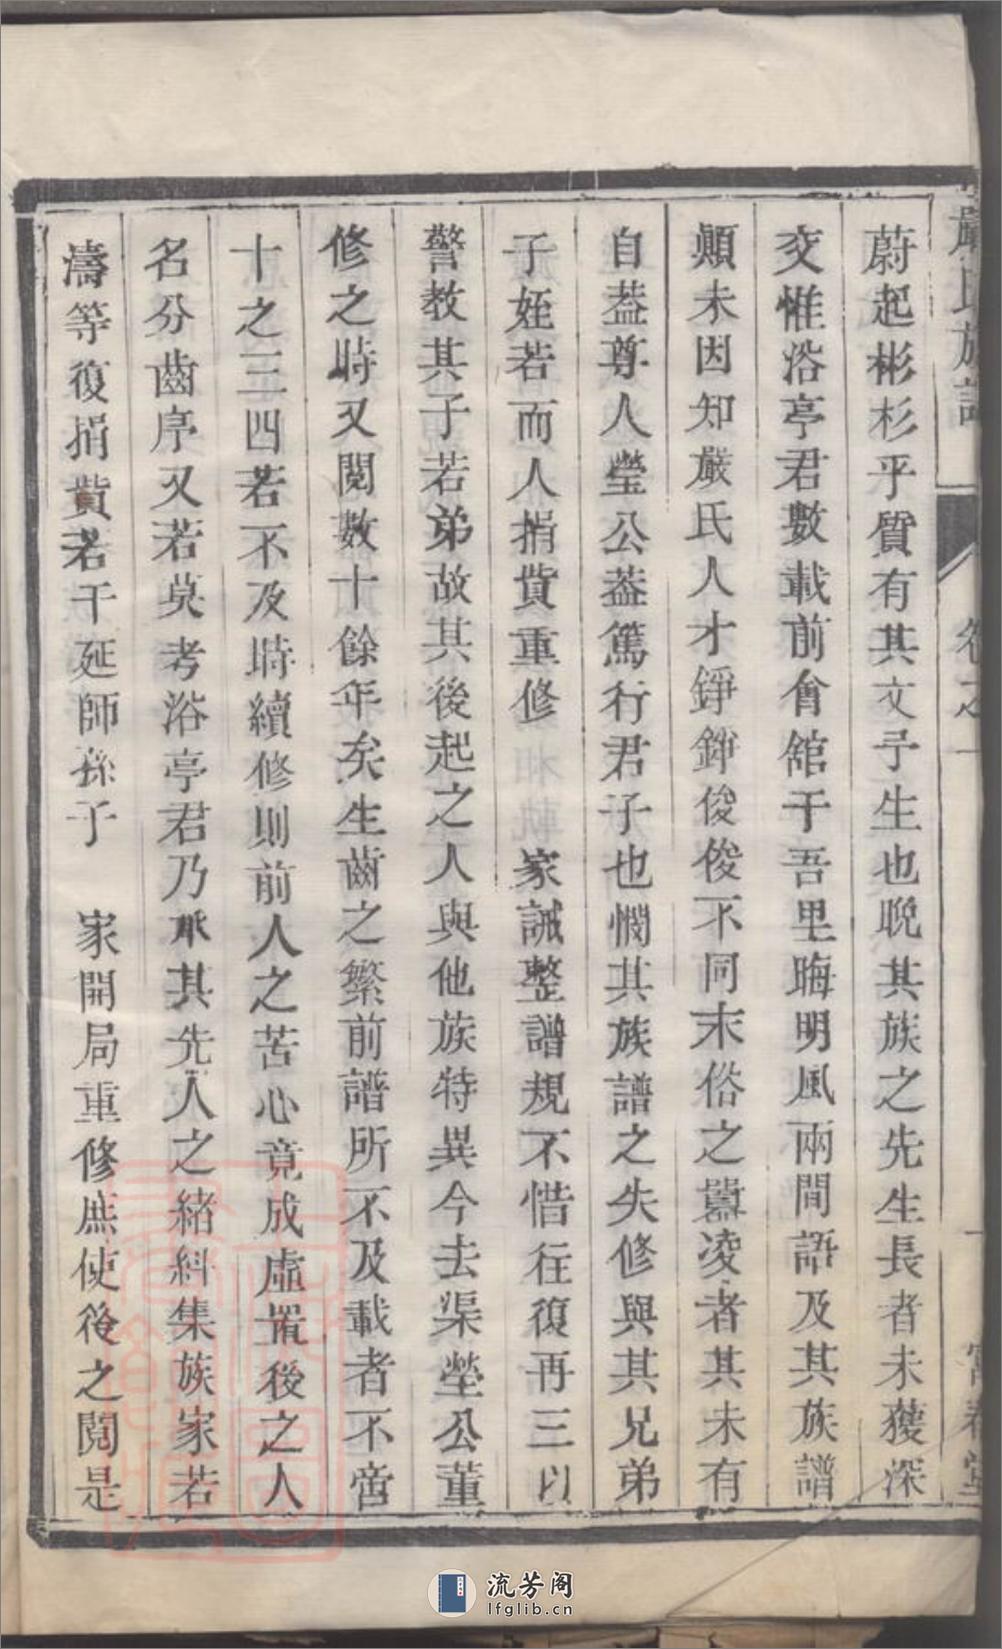 嚴氏族譜
卷之一
一
蔚起彬彬乎質有其文予生也晚其族之先生長者未獲深
交惟浴亭君數載前會館于吾里晦明風雨間語及其族譜
顛末因知嚴氏人才錚錚俊俊不同末俗之囂凌者其未有
自葢尊人瑩公葢篤行君子也憫其族譜之失修與其兄弟
子姪若而人捐貲重修 家誡整譜規不惜往復再三以
警教其子若弟故其後起之人與他族特異今去渠塋公董
修之時又閱數十餘年矣生齒之繁前譜所不及載者不啻
十之三四若不及時續修則前人之苦心竟成虛置後之人
名分齒序又若莫考浴亭君乃承其先人之緒糾集族家若
濤等復捐貲若干延師孫子 家開局重修庶使後之閱是
流芳阁
lfglib.cn